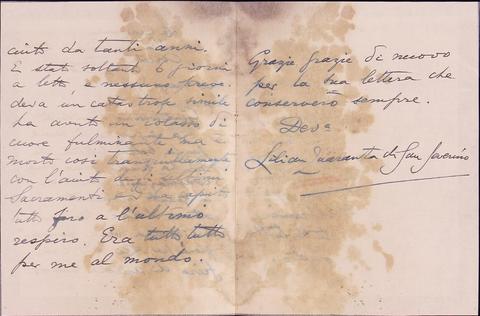 ciuto da tanti anni.
È stato soltanto 6 giorni
a letto e nessuno preve-
deva un catastrofe simile
ha avuto un collasso di
cuore fulminante ma è
morto così tranquillamente
con l'aiuto degli ultimi
Sacramenti e ha capito
tutto fino a l'ultimo
respiro. Era tutto tutto
per me al mondo.
Grazie grazie di nuovo
per la sua lettera che
conserverò sempre.
Dev^a
Lilian Quaranta di San Severino